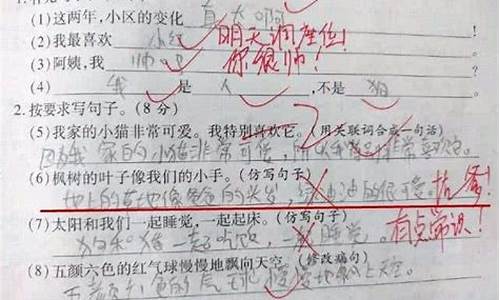 (1)这两年,小区的变化 真大啊
(2)我最喜欢 小红 明天调座位!
(3)阿姨,我 帅吧 你很帅!
(4) 我 是 人 ,不是 狗
2.按要求写句子。(8分)
(5)我家的小猫非常可爱。我特别喜欢它。(用关联词合成一句话)
因为我家的小猫非常可爱,所以我特别非常喜欢它。
(6)枫树的叶子像我们的小手。(仿写句子)
地上的草地像爸爸的头发,绿油油的很可爱。抗爹!
(7)太阳和我们一起睡觉,一起起床。(仿写句子)
狗和猪一起吃饭,一起睡觉。有点常识!
(8)五颜六色的红气球慢慢地飘向天空。(修改病句)
五颜六色的气球慢慢地飘上天空。